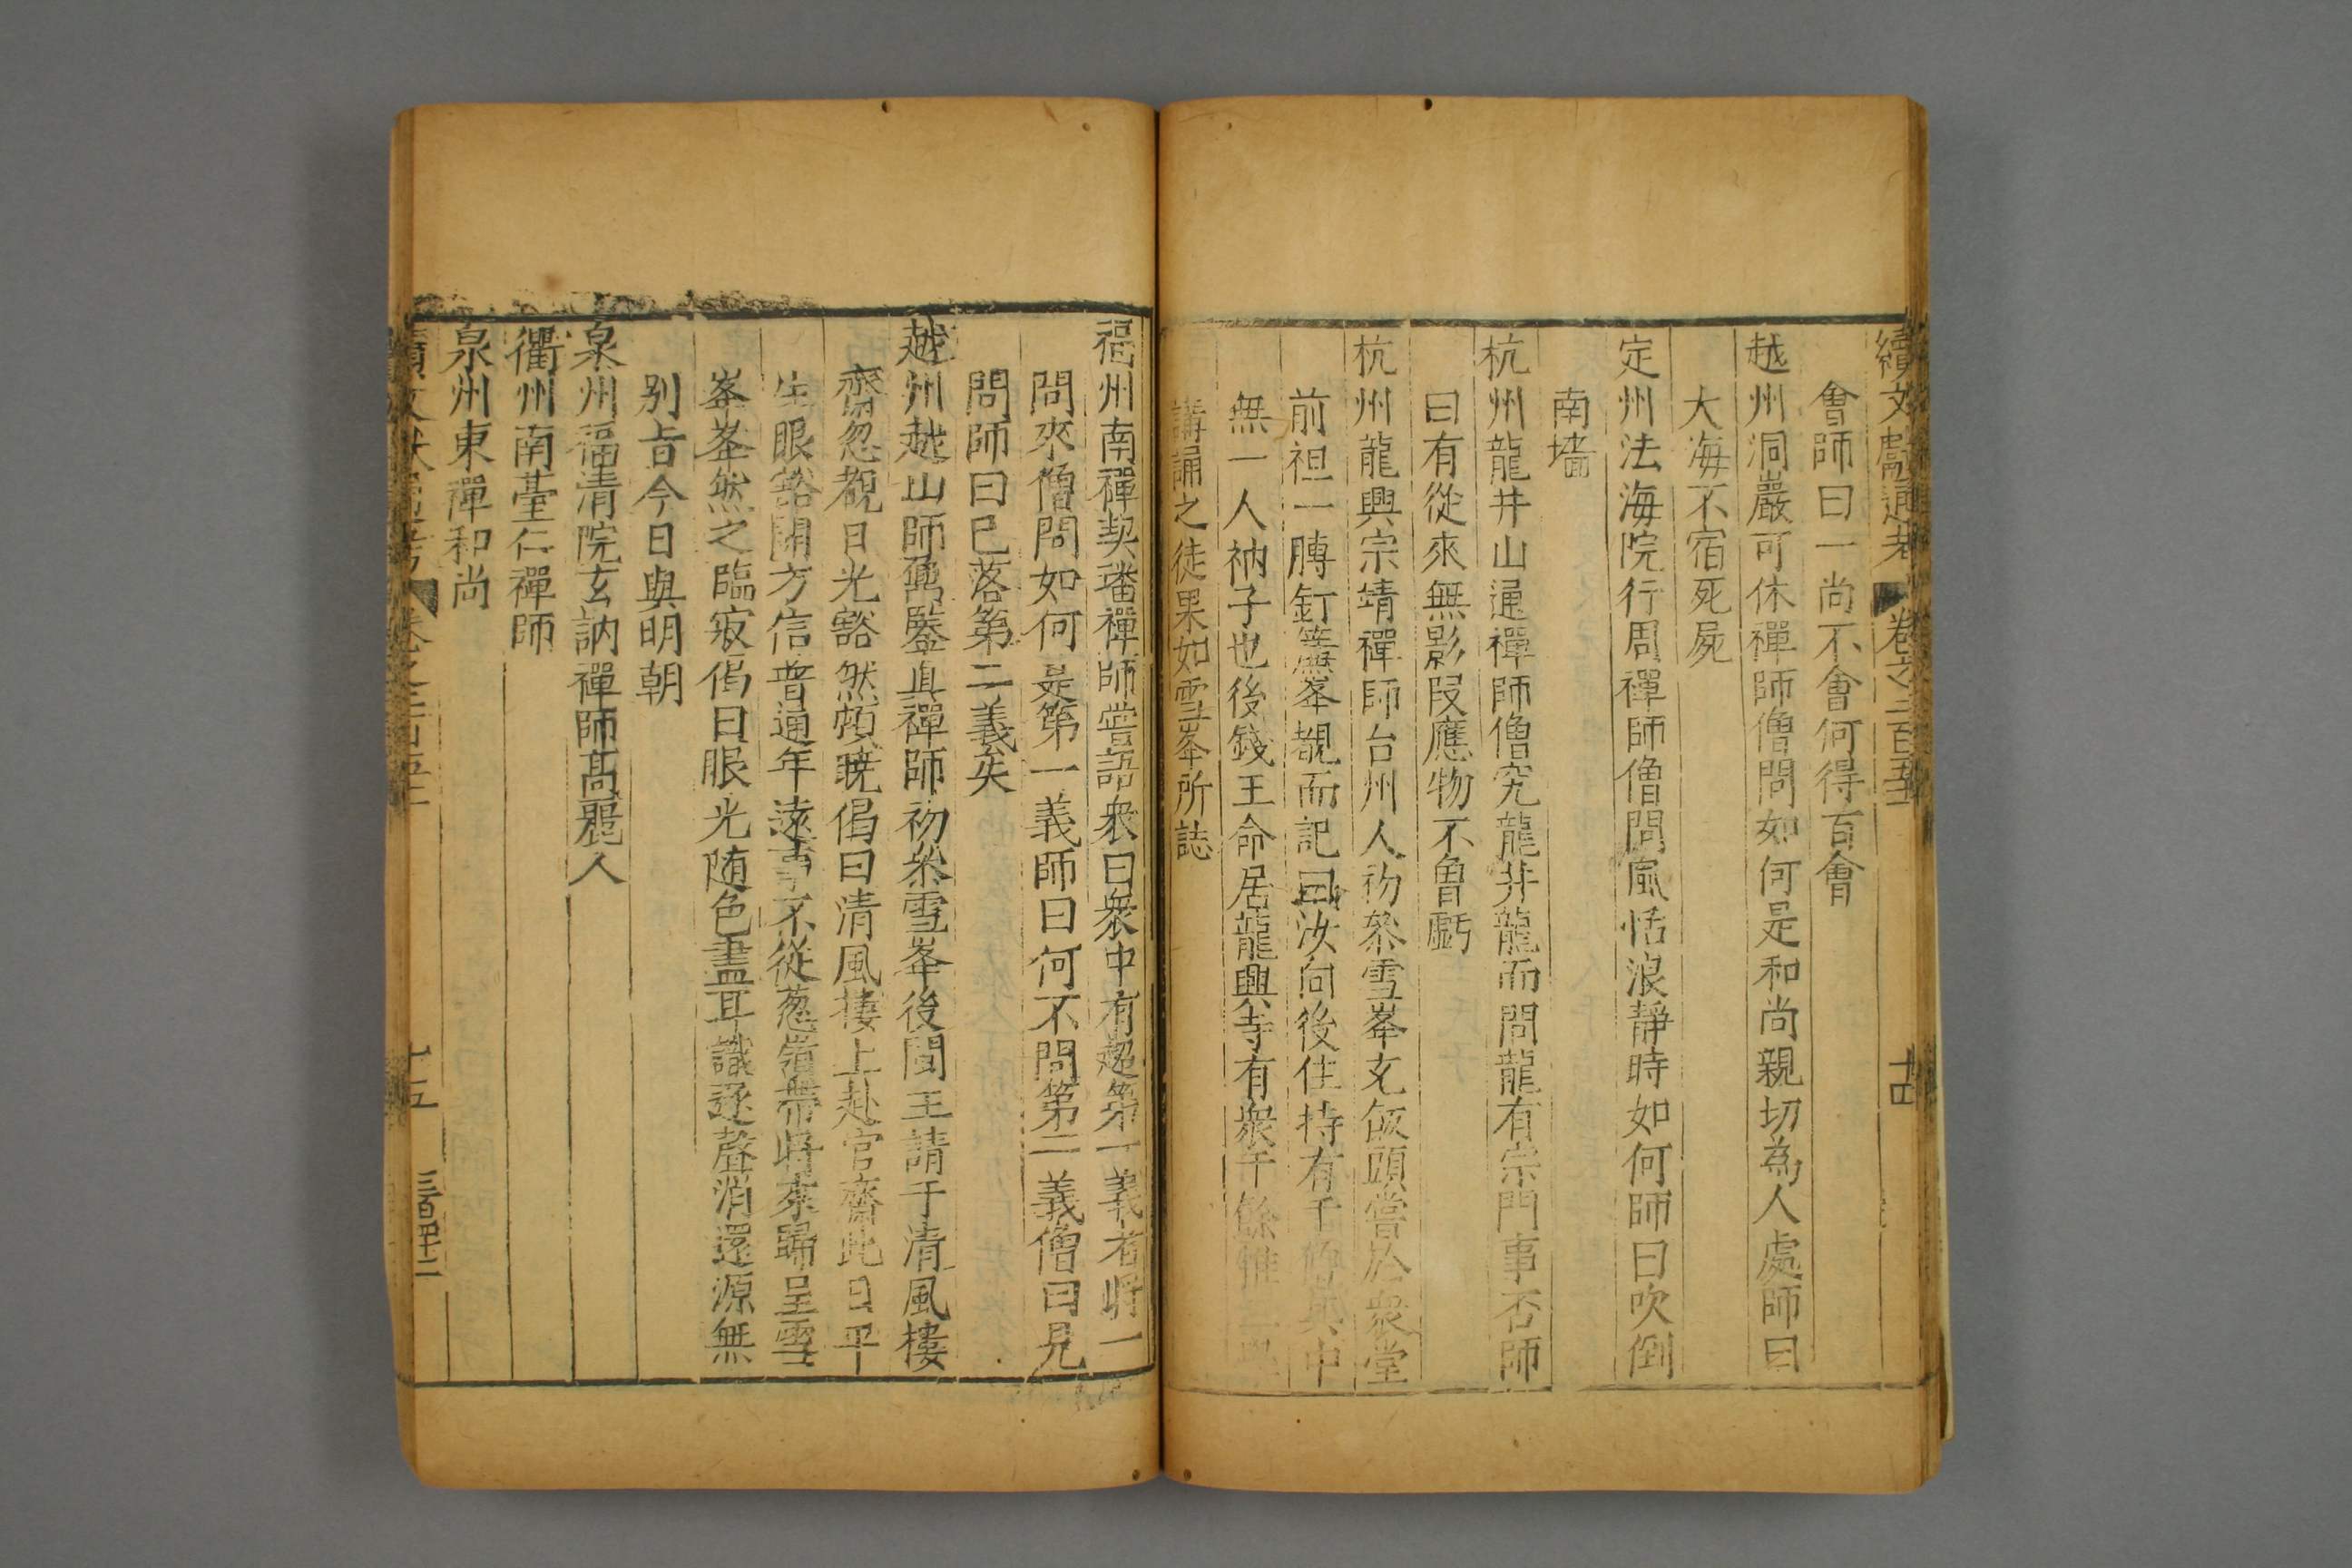 續文獻通考 卷之二百五十一 十四
會師曰一尚不會何得百會
越州洞巖可休禪師僧問如何是和尚親切為人處師曰
大海不宿死屍
定州法海院行周禪師僧問風恬浪靜時如何師曰吹倒
南墻
杭州龍井山通禪師僧究龍井龍而問龍有宗門事否師
曰有從來無影段應物不曾虧
杭州龍興宗靖禪師台州人初叅雪峯充飯頭嘗於衆堂
前袒一膊釘簾峯覩而記曰汝向後住持有千僧其中
無一人衲子也後錢王命居龍興寺有衆千餘惟三學
講誦之徒果如雪峯所誌
福州南禪契璠禪師嘗語衆曰衆中有超第一義者將一
問來僧問如何是第一義師曰何不問第一義僧曰見
問師曰已落第二義矣
越州越山師鼐鑒真禪師初叅雪峯後閩王請于清風樓
齋忽覩日光豁然頓曉偈曰清風樓上赴官齋此日平
生眼豁開方信普通年遠事不從葱嶺帶將來歸呈雪
峯峯然之臨寂偈曰眼光随色盡耳識逐聲消還源無
别旨今日與明朝
泉州福清院玄訥禪師高麗人
衢州南臺仁禪師
泉州東禪和尚
續文獻通考 卷之 十五 三百四十二